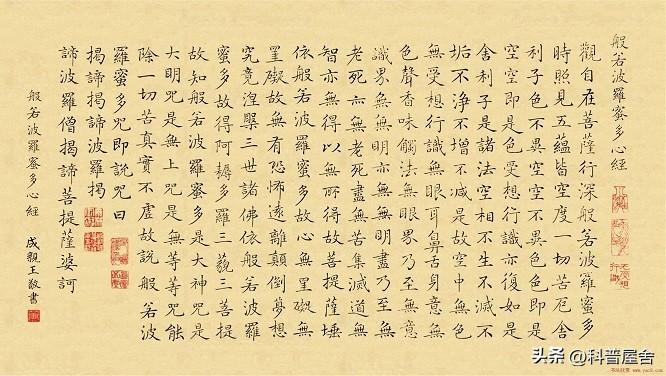 般若波羅蜜多心經
觀自在菩薩行深般若波羅蜜多
時照見五蘊皆空度一切苦厄舍
利子色不異空空不異色色即是
空空即是色受想行識亦復如是
舍利子是諸法空相不生不滅不
垢不淨不增不減是故空中無色
無受想行識無眼耳鼻舌身意無
色聲香味觸法無眼界乃至無意
識界無無明亦無無明盡乃至無
老死亦無老死盡無苦集滅道無
智亦無得以無所得故菩提薩埵
依般若波羅蜜多故心無罣礙無
罣礙故無有恐怖遠離顛倒夢想
究竟涅槃三世諸佛依般若波羅
蜜多故得阿耨多羅三藐三菩提
故知般若波羅蜜多是大神咒是
大明咒是無上咒是無等等咒能
除一切苦真實不虛故說般若波
羅蜜多咒即說咒曰
揭諦揭諦波羅揭
諦波羅僧揭諦菩提薩婆訶
般若波羅蜜多心經
成親王敬書
头条 @科普屋舍